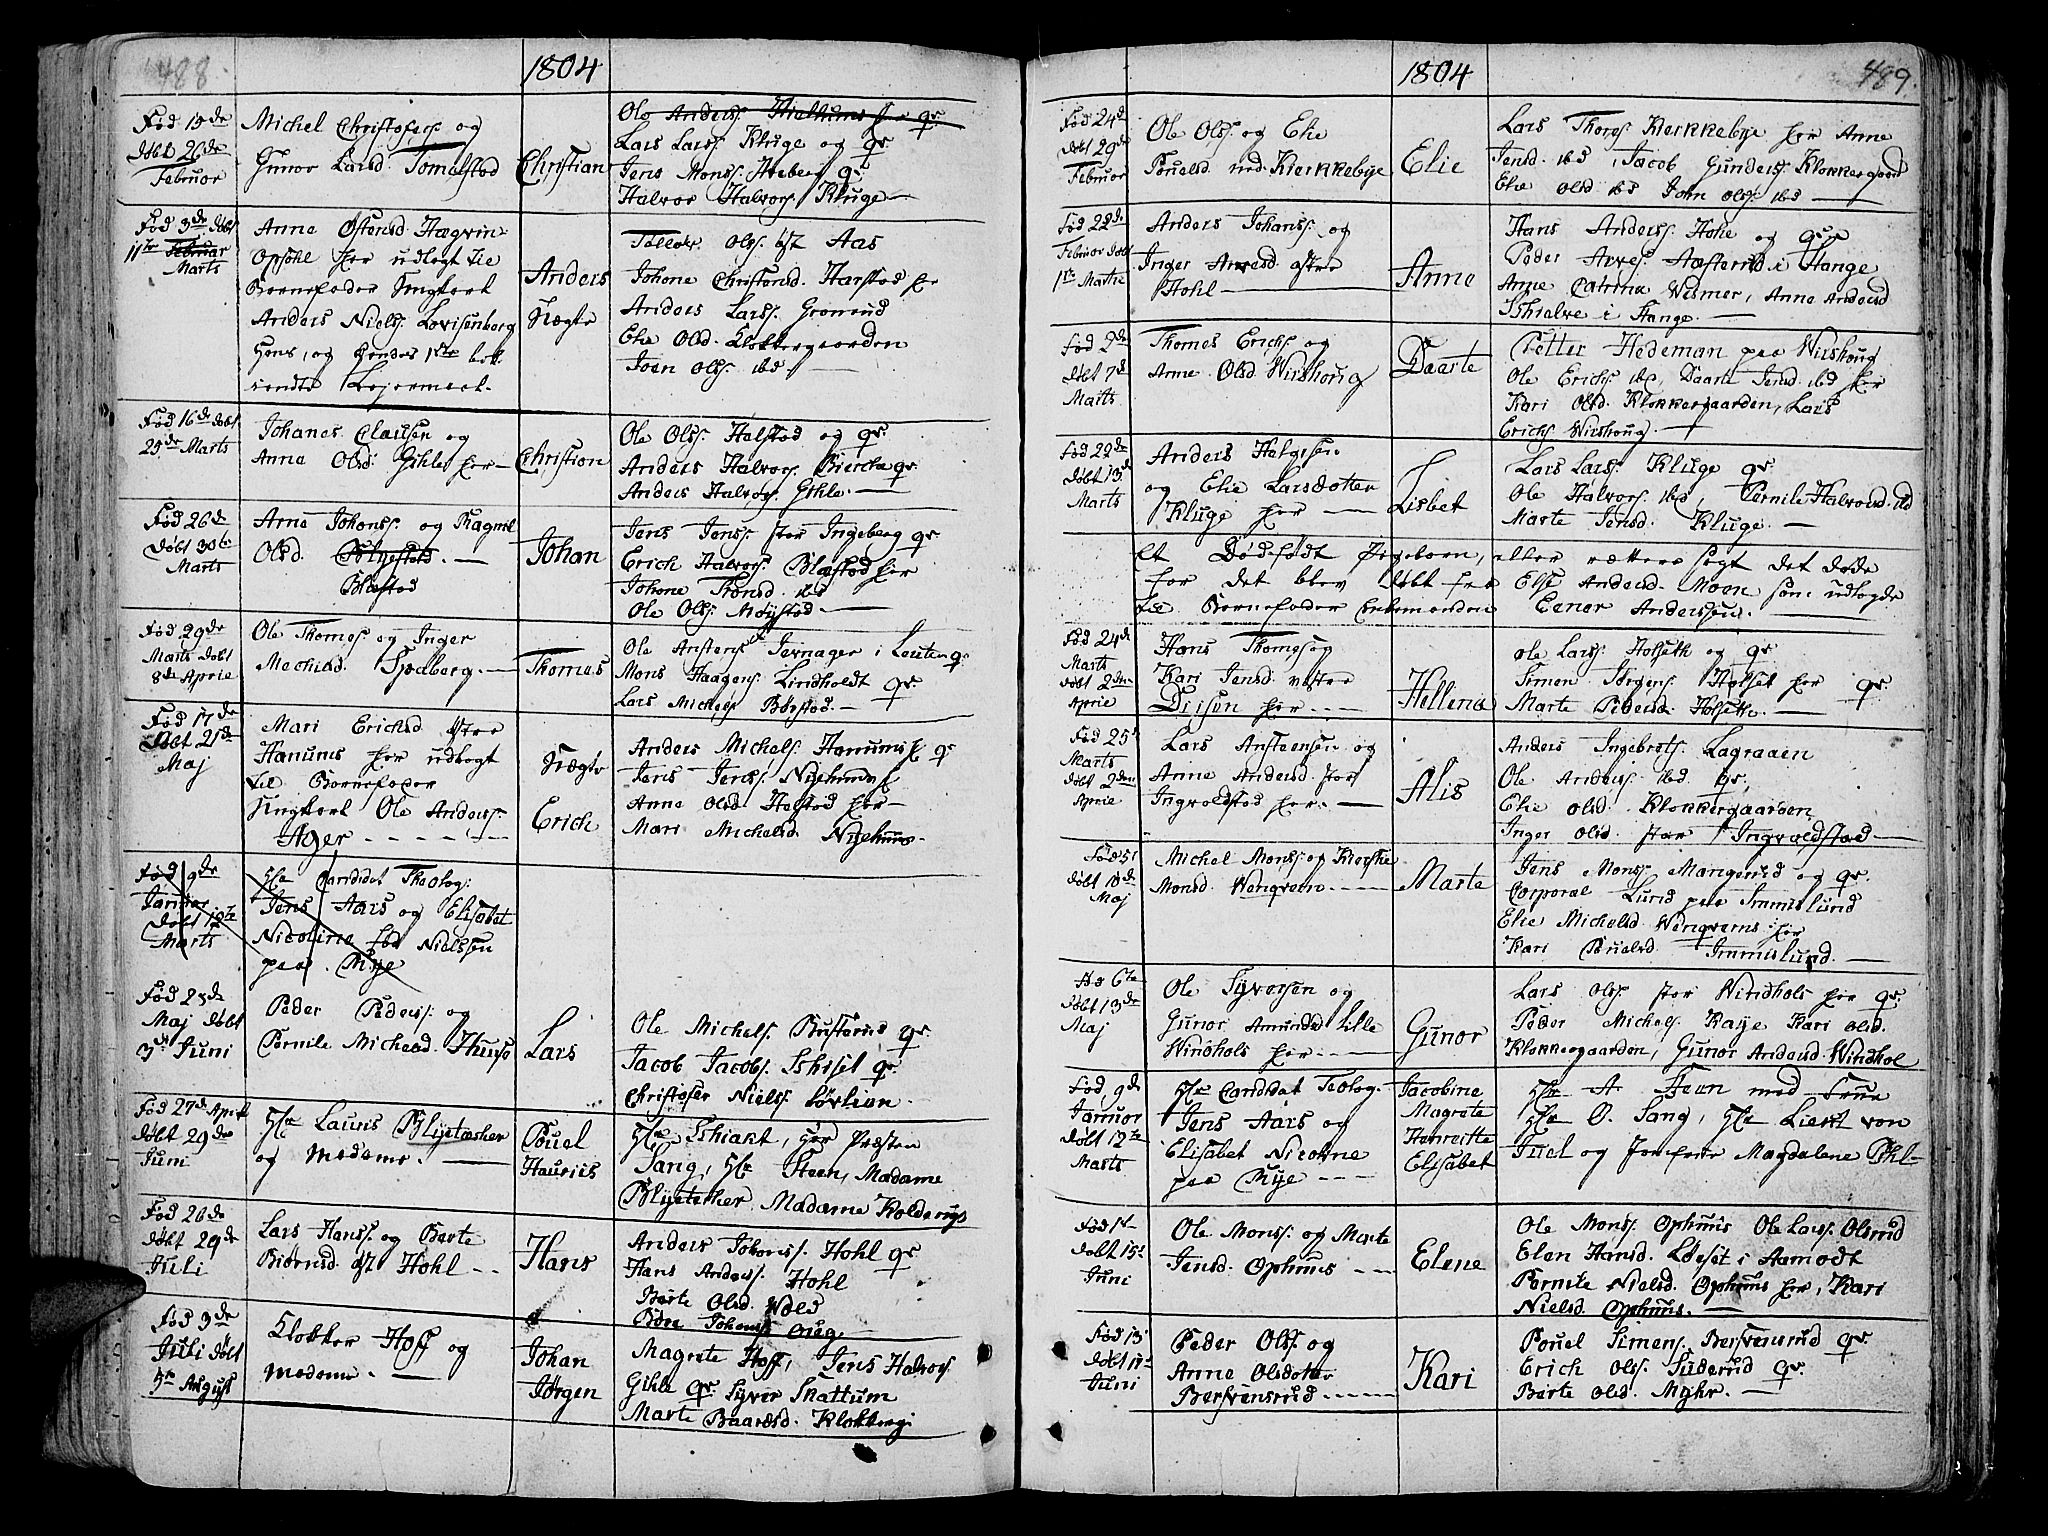 488
1804
Fød 15de
Døbt 26de
Februar
Michel Christofers: og
Gunor Larsd. Tomelstad
Christian
Ole Anders: qr.
Lars Larss: Kluge og qr
Jens Monss: qr.
Halvor Halvors: Kluge
Fød 3de Døbt
11te Februar
Marts
Anne Østensd
Opsahl her udlagt til
Barnefader Ungkarl
Anders Niels: Lovisenberg
hans, og hendes 1ste
Leiermaal.
Anders
Uægte
Olss. øst Aas
Johane Christensd. Harstad her
Anders Larss: Gronrud
Elie Olsd. Klokkergaarden
Joen Olss: ibd
Fød 16de Døbt
25de Marts
Johanes Clausen og
Anne Olsd: Gihle her
Christian
Ole Olss: Halstad og qr.
Anders Halvors: Biercke qr.
Anders Halvors: Gihle.
Fød 26de
Døbt 30te
Marts
Arne Johans: og Ragnil
Olsd.
Blæstad
Johan
Jens Jens: stor Ingeberg qr
Erich Halvors: Blæstad her
Johane Tronsd. ibd
Ole Olss: Møystad
Fød 29de
Marts Døbt
8de Aprile
Ole Thomes: og Inger
Michelsd. Spælberg.
Thomes
Ole Anstens: Jernager i Leuten qr.
Mons Haagens: Lindholdt qr.
Lars Michels: Børstad.
Fød 17de
Døbt 21de
Maj
Mari Erichsd øster
Hanums her udlagt
til Barnefader
Ungkarl Ole Anders:
Ager
Uægte
Erich
Anders Michels: Hanums qr
Jens Jens:
Anne Olsd Halstad her
Mari Michelsd. Nishuus
Fød 9de
Januar
Døbt 12te
Marts
Hr. Candidat Theolog:
Jens Aars og Elisabet
Nicoline fød Nielssen
paa Mye
Fød 23de
Maj Døbt
3de Juni
Peder Peders: og
Pernile Michelsd. Thuso
Lars
Ole Michels: qr.
Jacob Jacobs: Skiset qr.
Christofer Niels: Lørlien.
Fød 27de April
Døbt 29de
Juni
Hr. Lauris Blijetækker
og Madame.
Pouel
Hauriis
Hr. Schiøtt, her Præsten
Sang, Hr. Steen, Madame
Blijetækker, Madame Kolderups
Fød 26de
Døbt 29de
Juli
Lars Hanss: og Berte
Biørnsd. øst Hohl
Hans
Anders Johanis: Hohl qr
Hans Anders: Hohl
Berte Olsd. Wold
Johans:
Fød 3de
Juli Døbt
5te August
Klokker Hoff og
Madame
Johan
Jørgen
Magrete Hoff, Jens Halvors:
Gihle qr. Syver Skattum
Marte Baardsd. Klokkergi
489
1804
Fød 24de
Døbt 29de
Februar
Ole Olss: og Elie
Pouelsd. ned. Kierkkebye
Elie
Lars Thores: Kierkkebye her Anne
Jensd. ibd, Jacob Gunders: Klokkergaard
Elie Olsd ibd Joen Olss: ibd
Fød 22de
Februar Døbt
1te Martii
Anders Johanss: og
Inger Arnesd øster
Hohl
Anne
Hans Anders: Hohe og qr.
Peder Arnes: i Stange
Anne Catrina Wismer, Anne Andersd
Skialve i Stange.
Fød 2de
Døbt 7de
Marts
Thomes Erichs: og
Anne Olsd. Wirshoug
Daarte
Petter Hedeman paa Wirshoug
Ole Erichs: ibd, Daarte Jensd. ibd her
Kari Olsd. Klokkergaarden, Lars
Erichs: Wirshoug.
Fød 22de
Døbt 13de
Marts
Anders Helgesen
og Elie Larsdotter
Kluge her
Lisbet
Lars Larss: Kluge qr.
Ole Halvors: ibd, Pernile Halvorsd. ibd
Marte Jensd. Kluge.
Et Dødfødt Pigebarn, eller rettere sagt det døde
før det blev døbt fra Else Andersd. Moen som udlagde
til Barnefader Enkemanden Eener Anderssen.
Fød 24de
Marts
Døbt 2den
Aprile
Hans Thomes: og
Kari Jensd. vester
Disen her
Hellena
ole Larss: Holseth og qr.
Simen Jørgens: Holset her qr.
Marte Pedersd. Holseth.
Fød 25
Marts
Døbt 2den
Aprile
Lars Ansteensen og
Anne Andersd. stor
Ingvoldstad her.
Alis
Anders Ingebrets: Lagraaen
Ole Anders: ibd. qr.
Elie Olsd. Klokkergaarden
Inger Olsd. stor Ingvoldstad
Fød 5
Døbt 10de
Maj
Michel Mons: og Kierstie
Monsd. Wenqvern
Marte
Jens Mons: Mangerud og qr.
Corporal Lund paa Immislund
Elie Michelsd Wenqverns her
Kari Pouelsd. Immislund.
Fød 6te
Døbt 13de
Maj
Ole Syversen og
Gunor Amundsd Lille
Windhols her
Gunor
Lars Olss: stor Windhols her qr.
Peder Michels: Kaxe Kari Olsd.
Klokkergaarden, Gunor Andersd. Windhol
Fød 9de
Januar
Døbt 12te
Marts
Hr. Candidat Teolog.
Jens Aars og
Elisabet Nicoline
paa Mye
Jacobine
Magrete
Henreitte
Elisabet
Hr. A. Steen med Frue
Hr. O. Sang, Hr. Lieut von
Juel og Jomfrue Magdalene Pihl
Fød 14
Døbt 15
Juni
Ole Mons: og Marte
Jensd. Ophuus
Elene
Ole Monss. Ophuus Ole Larss. Olsrud
Elen Hansd. Løset i Aamodt
Pernile Nielsd. Ophuus her, Kari
Nielsd. Ophuus.
Fød 13
Døbt 17
Juni
Peder Olss: og
Anne Olsdotter
Berfvensrud
Kari
Pouel Simens: Berfvensrud qr.
Erich Olss: Suderud qr.
Berte Olsd. Myhr.